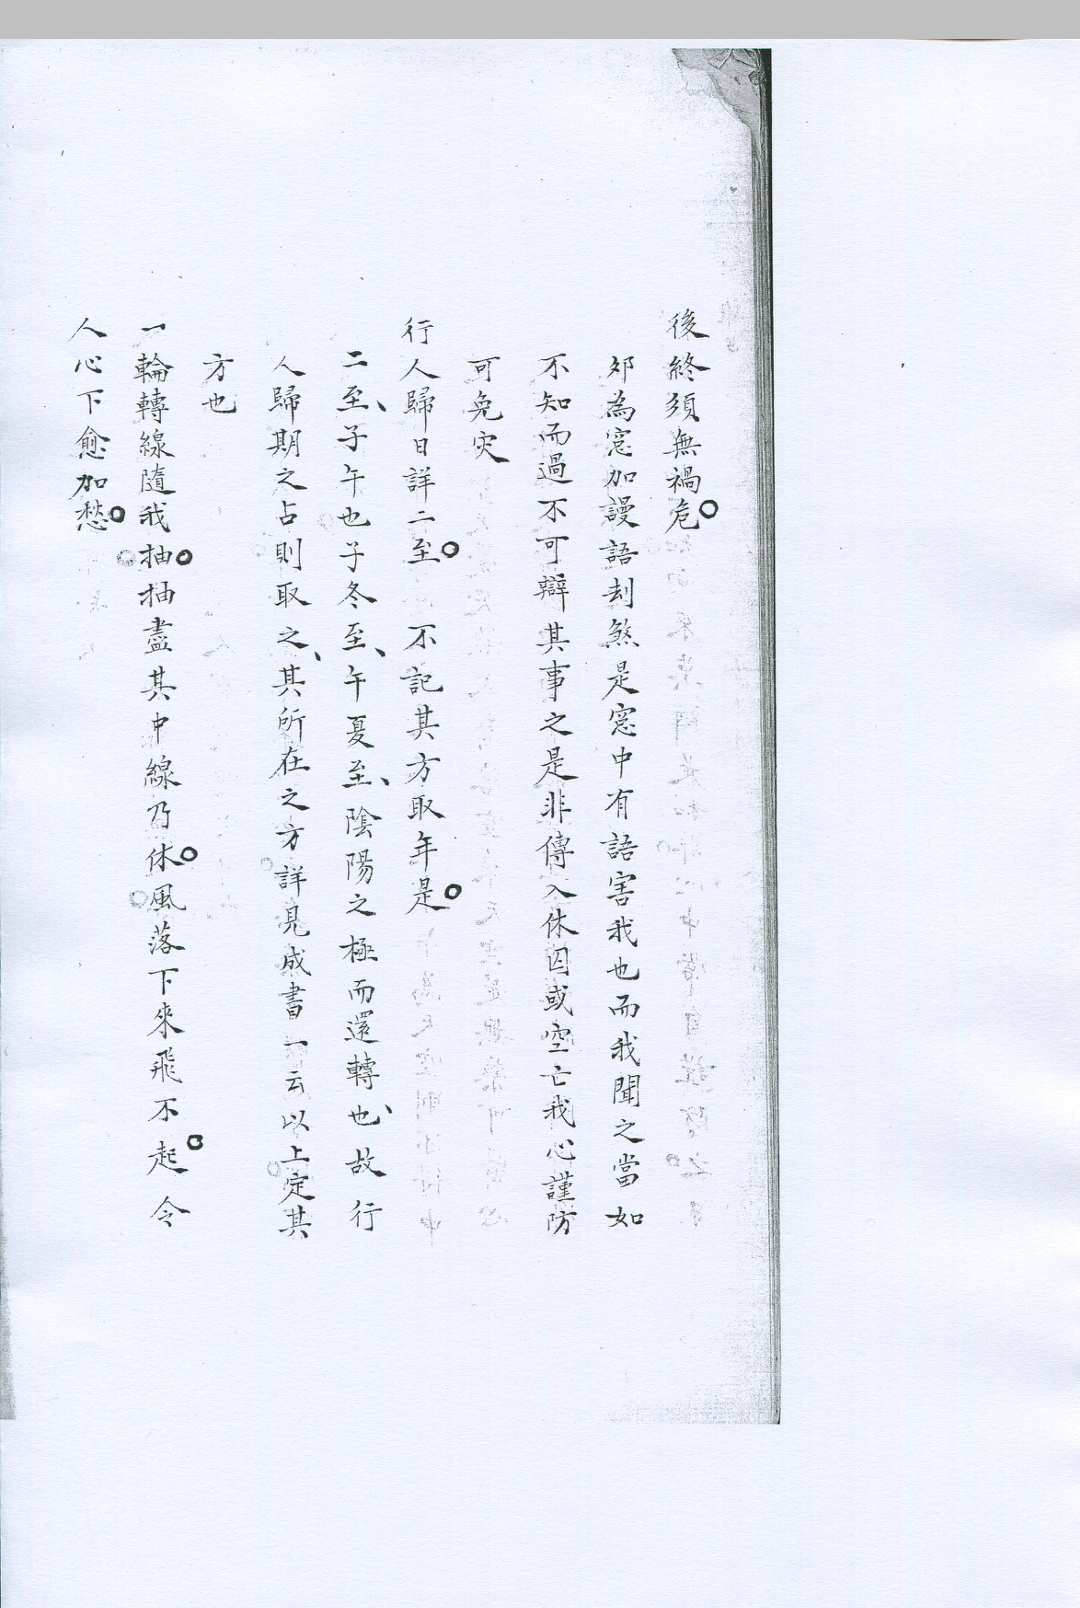 後終須無禍危。
夘為窓加謾語刦煞是窓中有語害我也而我聞之當如
不知而過不可辯其事之是非傳入休囚或空亡我心謹防
可免灾
行人歸日詳二至。不記其方取年是。
二至、子午也子冬至、午夏至、陰陽之極而還轉也、故行
人歸期之占則取之、其所在之方詳見成書一云以上定其
方也
一輪轉線隨我抽。抽盡其中線乃休。風落下來飛不起。令
人心下愈加愁。